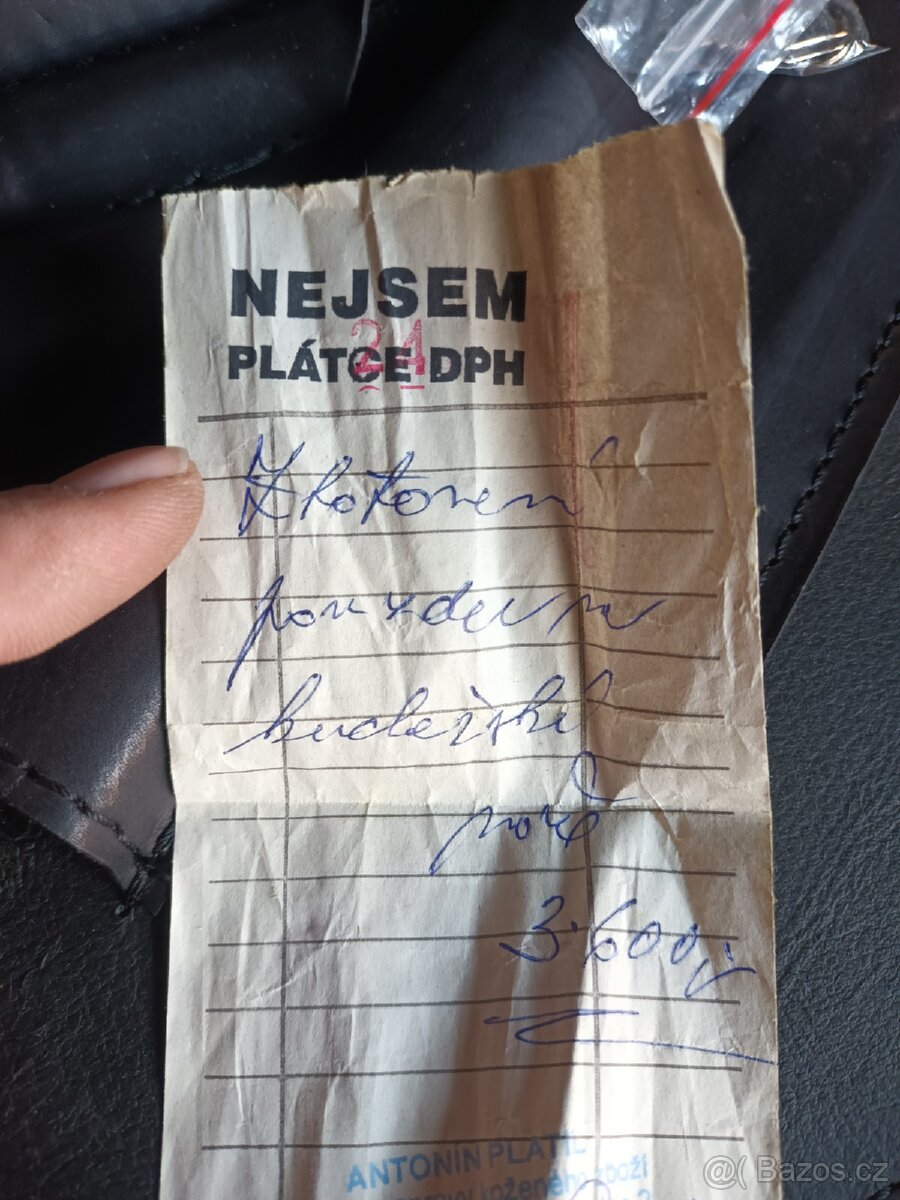 NEJSEM
PLÁTCE DPH
24
Zhotovení
pouzdra na
kudeiské
nože
3.600,-
ANTONÍN PLATIL
koženého zboží
@( Bazos.cz